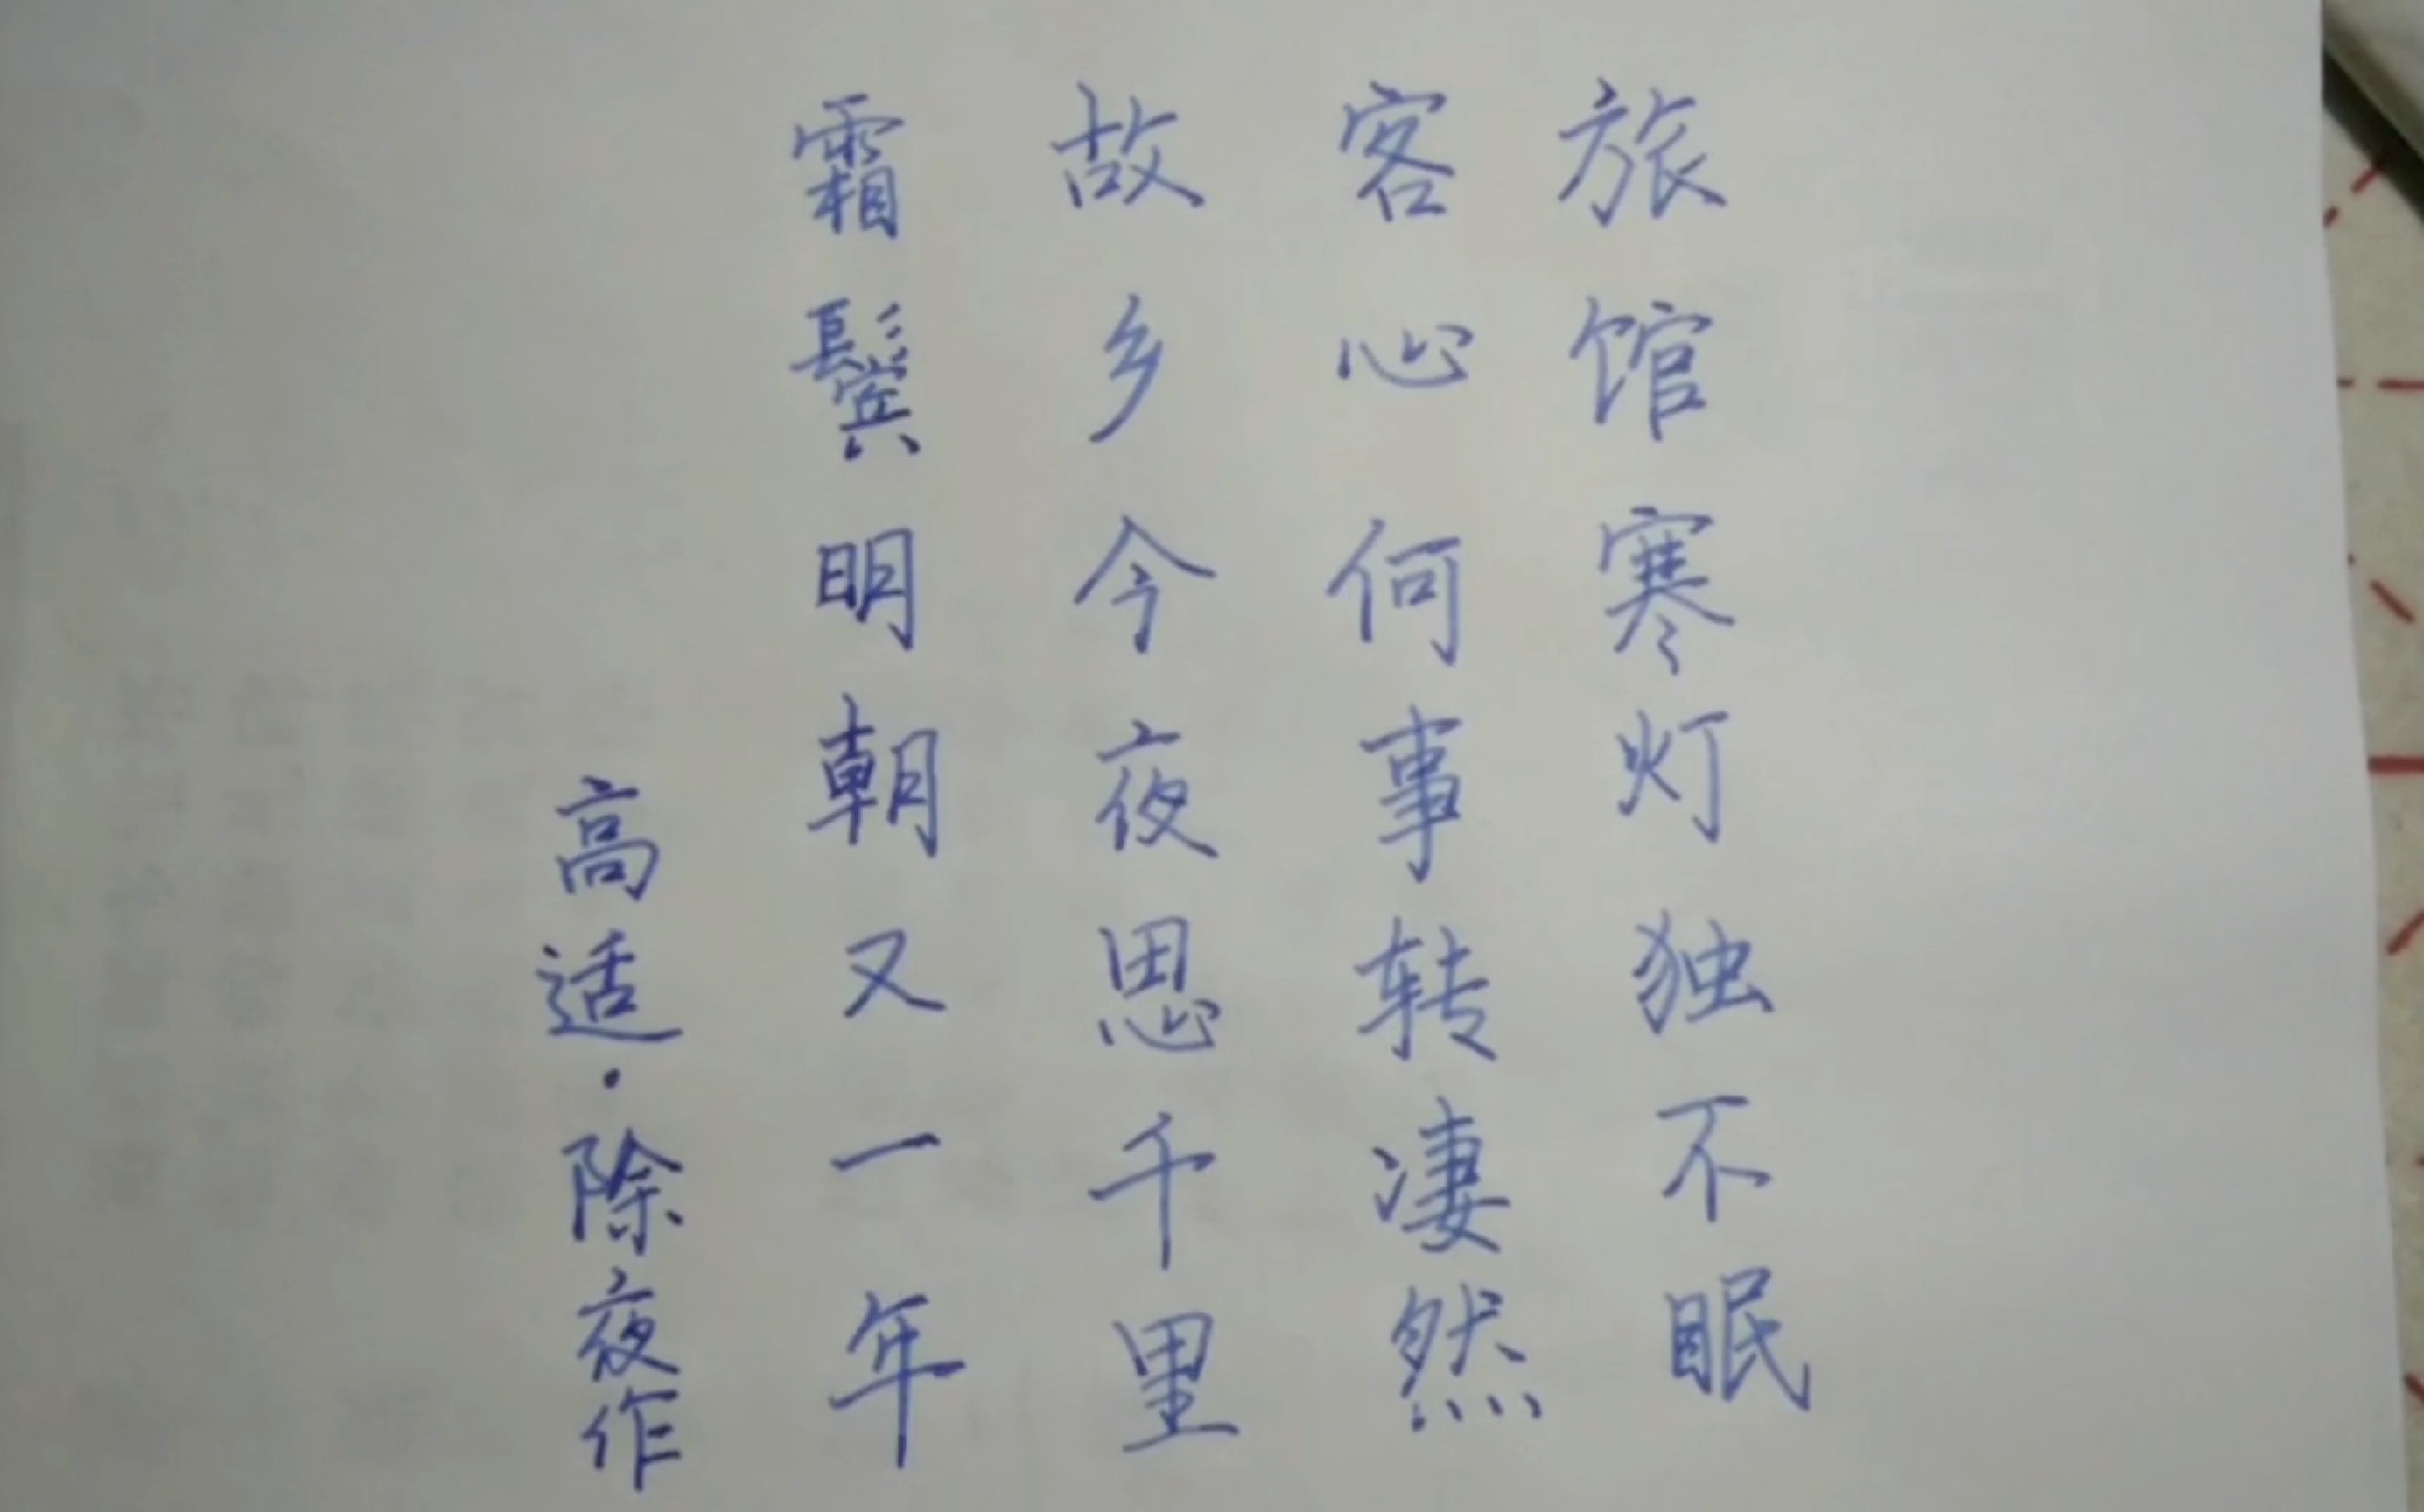 旅馆寒灯独不眠
客心何事转凄然
故乡今夜思千里
霜鬓明朝又一年
高适·除夜作